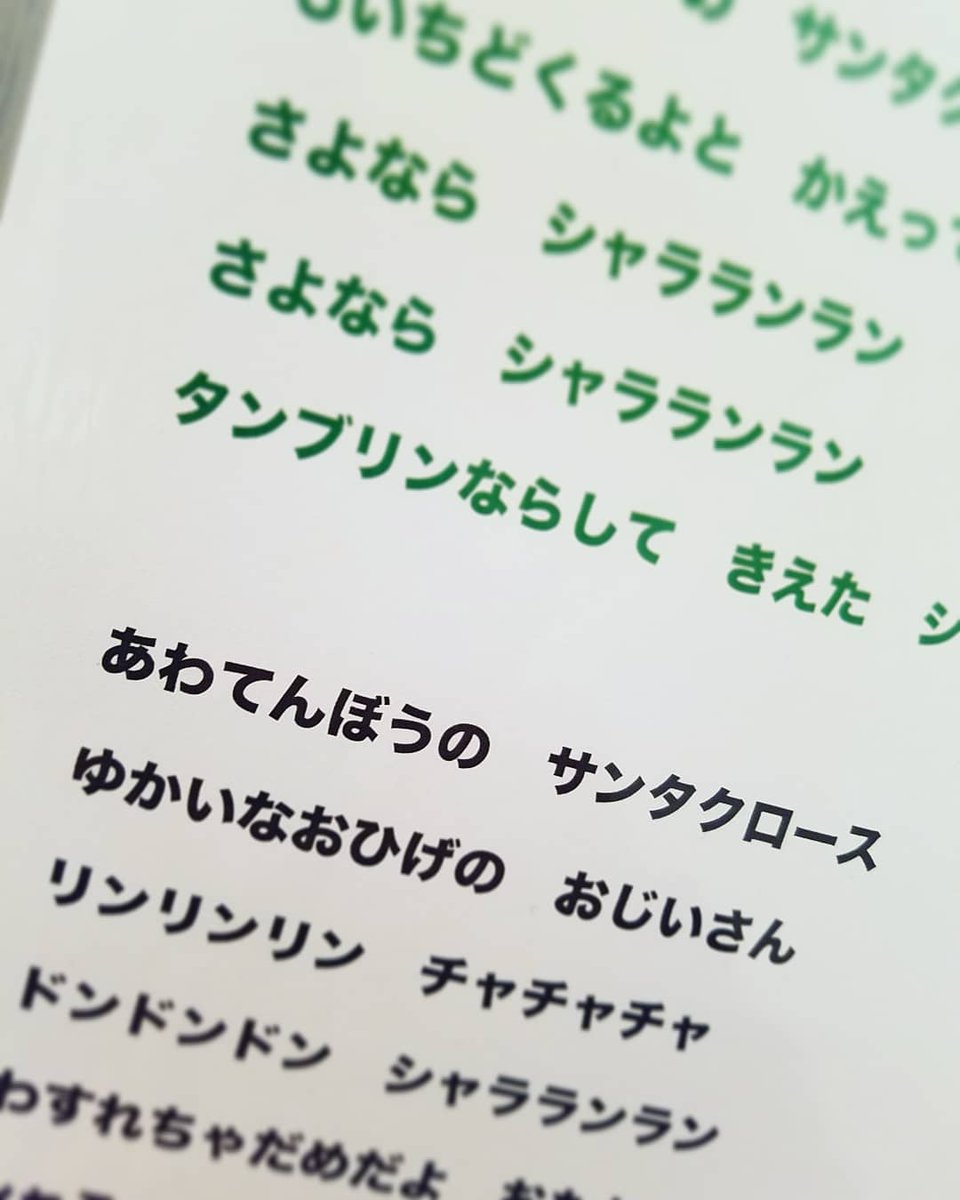 サンタク
もいちどくるよと　かえって
さよなら　シャラランラン
さよなら　シャラランラン
タンブリンならして　きえた　シ
あわてんぼうの　サンタクロース
ゆかいなおひげの　おじいさん
リンリンリン　チャチャチャ
ドンドンドン　シャラランラン
わすれちゃだめだよ　おも